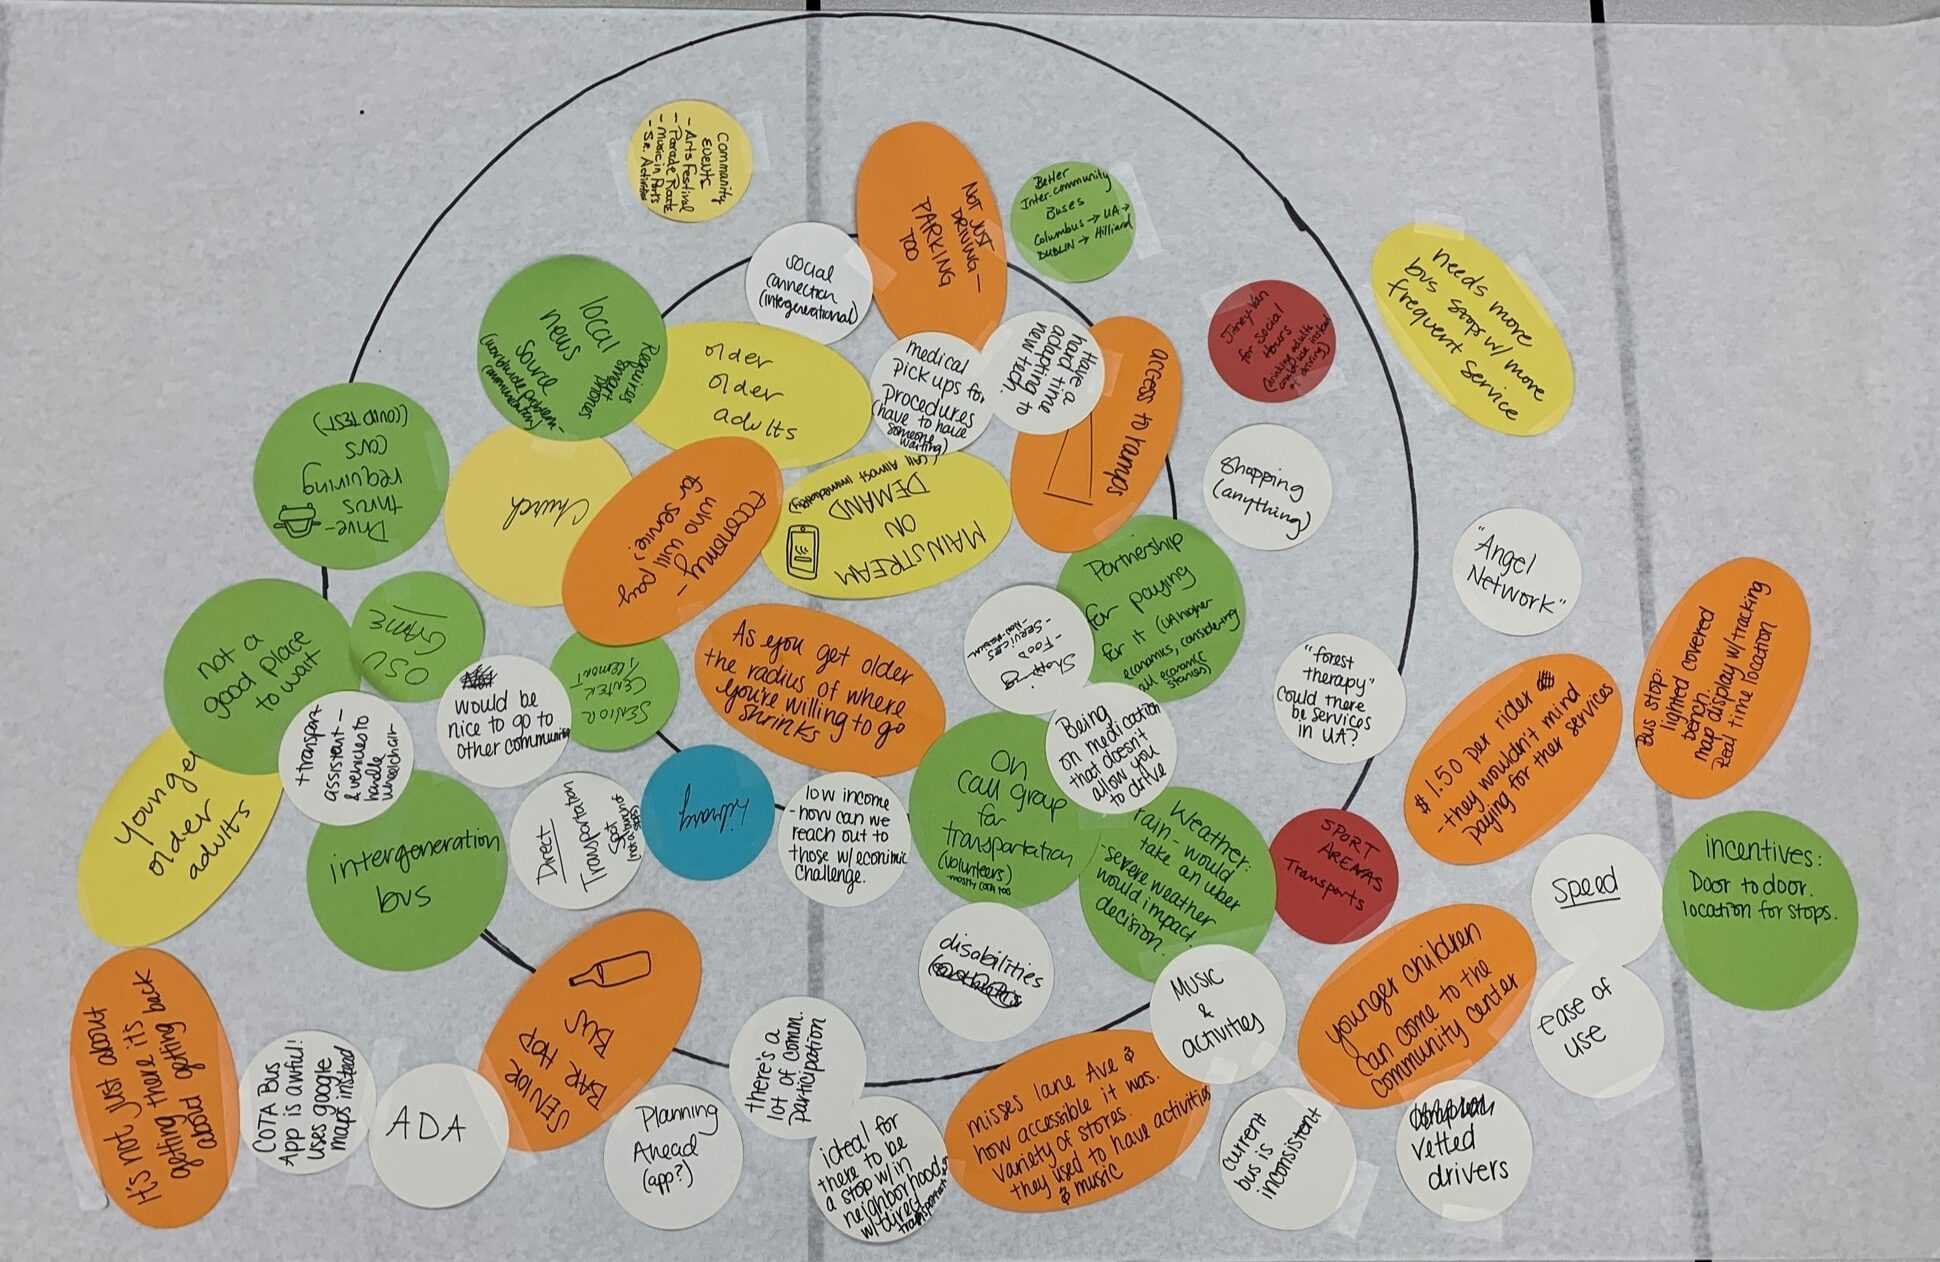 Community
Events
- Arts Festival
- Parade Route
- Music in Parks
- Sr. Activities
NOT JUST
DRIVING -
PARKING
TOO
Better
Inter.community
Buses
Columbus → UA →
DUBLIN → Hilliard
social
connection
(intergenerational)
local
news
source
(worldwide problem -
communication)
Requires
smart
phones
older
older
adults
medical
pick ups for
procedures
(have to have
someone
waiting)
Have a
hard time
adapting to
new tech.
access to ramps
Jitney-Van
for Social
Hours
(drinking adults
could use instead
of driving)
needs more
bus stops w/ more
frequent service
Drive-
thrus
requiring
cars
(COVID TEST)
Church
Economy -
who will pay
for service?
MAINSTREAM
ON
DEMAND
(call Almost immediately)
Shopping
(anything)
"Angel
Network"
Partnership
for paying
for it (UA higher
economics, considering
all economic
stances)
Shopping
- FOOD
- SERVICES
not a
good place
to wait
OSU
GAME
would be
nice to go to
other communities
SENIOR
CENTER -
TREMONT
As you get older
the radius of where
you're willing to go
shrinks
"forest
therapy"
could there
be services
in UA?
$1.50 per rider
- they wouldn't mind
paying for ther services
Bus stop:
lighted covered
bench.
map display w/ tracking
Real time location
younger
older
adults
transport
assistent -
& vehicles to
handle
wheelchair
intergeneration
bus
Direct
Transportation
Spot
Library
low income
- how can we
reach out to
those w/ econimic
challenge.
On
call group
for
transportation
(volunteers)
Being
on medication
that doesn't
allow you
to drive
Weather:
rain - would
take an uber
- severe weather
would impact
decision.
SPORT
ARENAS
Transports
speed
incentives:
Door to door.
location for stops.
disabilities
SENIOR
BAR HOP
BUS
Music
&
activities
younger children
can come to the
community center
ease of
use
It's not just about
getting there it's
about getting back
COTA Bus
App is awful!
uses google
maps instead
ADA
Planning
Ahead
(app?)
there's a
lot of comm.
participation
ideal for
there to be
a stop w/ in
neighborhood
w/ direct
transportation
misses lane Ave &
how accessible it was.
variety of stores.
they used to have activities
& music
current
bus is
inconsistent
vetted
drivers